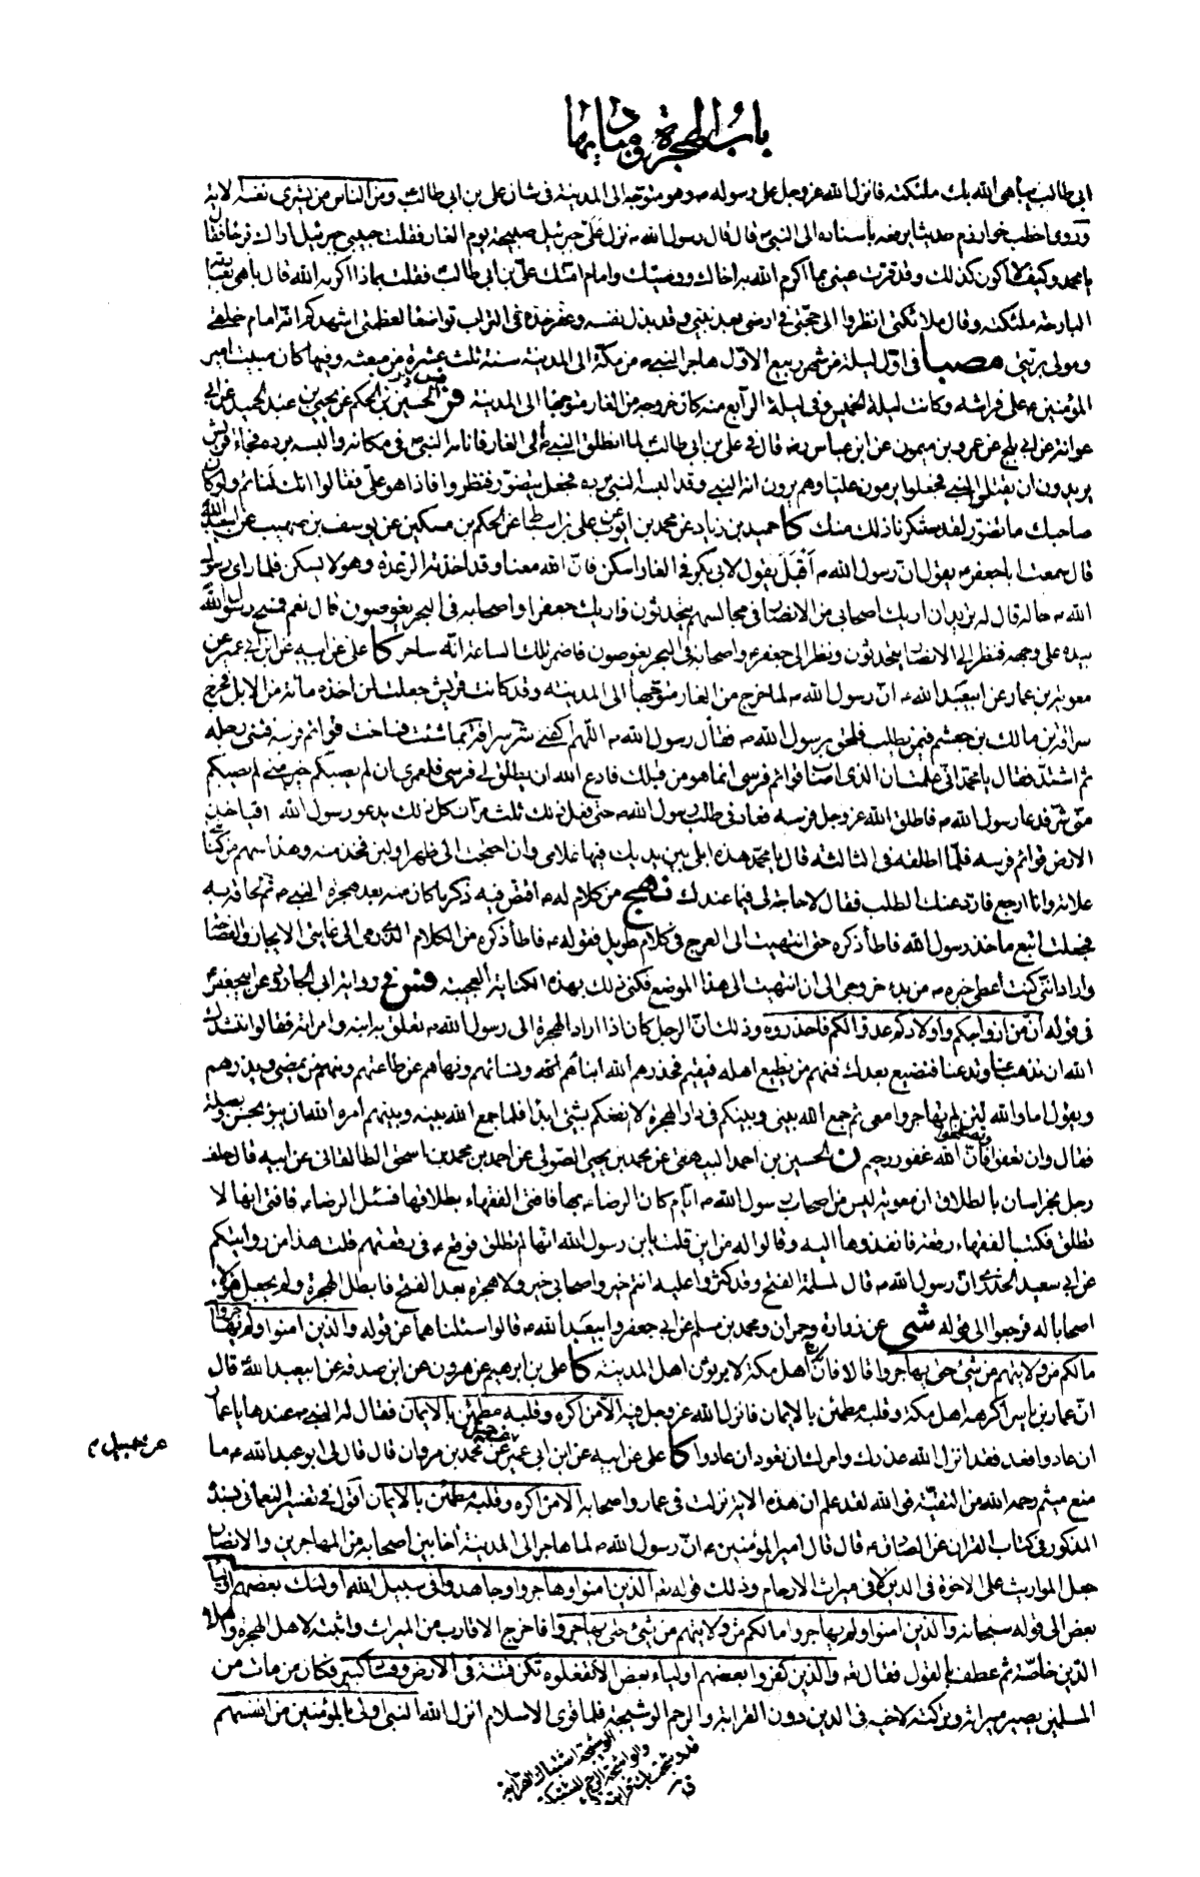 باب الهجرة ومباديها
ابي طالب يباهي الله بك ملئكته فانزل الله عز وجل على رسوله ص وهو متوجه الى المدينة في شان علي بن ابي طالب ومن الناس من يشرى نفسه الاية
وروى اخطب خوارزم حديثا يرفعه باسناده الى النبي ص قال قال رسول الله ص نزل عَلَيَّ جبرئيل صبيحة يوم الغار فقلت حبيبي جبرئيل اراك فرحا فقال
يا محمد وكيف لا اكون كذلك وقد قرت عيني بما اكرم الله به اخاك ووصيك وامام امتك علي بن ابي طالب فقلت بماذا اكرمه الله قال باهى بعبادته
البارحة ملئكته وقال ملائكتي انظروا الى حجتي في ارضي بعد نبيي وقد بذل نفسه وعفر خده في التراب تواضعا لعظمتي اشهدكم انه امام خلقي
ومولى بريتي مصبا في اول ليلة من شهر ربيع الاول هاجر النبي ص من مكة الى المدينة سنة ثلث عشرة من مبعثه وفيها كان مبيت امير
المؤمنين ع على فراشه وكانت ليلة الخميس وفي ليلة الرابع منه كان خروجه من الغار متوجها الى المدينة فر الحسين بن الحكم عن يحيى بن عبد الحميد عن ابي
عوانة عن ابي بلج عن عمرو بن ميمون عن ابن عباس رض قال في علي بن ابي طالب لما انطلق النبي ص الى الغار فانامه النبي ص في مكانه والبسه برده فجاء قريش
يريدون ان يقتلوا النبي فجعلوا يرمون عليا وهم يرون انه النبي وقد البسه النبي برده فجعل يتضور فنظروا فاذا هو علي فقالوا انك لنائم ولو كان
صاحبك ما تضور لقد استنكرنا ذلك منك كا حميد بن زياد عن محمد بن ايوب عن علي بن اسباط عن الحكم بن مسكين عن يوسف بن صهيب عن ابيعبد الله
قال سمعت ابا جعفر ع يقول ان رسول الله ص اَقْبَلَ يقول لابي بكر في الغار اسكن فان الله معنا وقد اخذته الرعدة وهو لا يسكن فلما راى رسول
الله ص حاله قال له تريد ان اريك اصحابي من الانصار في مجالسهم يتحدثون واريك جعفرا واصحابه في البحر يغوصون قال نعم فمسح رسول الله
بيده على وجهه فنظر الى الانصار يتحدثون ونظر الى جعفر ع واصحابه في البحر يغوصون فاضمر تلك الساعة انه ساحر كا علي عن ابيه عن ابن ابي عمير عن
معوية بن عمار عن ابيعبد الله ع ان رسول الله ص لما خرج من الغار متوجها الى المدينة وقد كانت قريش جعلت لمن اخذه مائة من الابل فخرج
سراقة بن مالك بن جعشم فيمن يطلب فلحق برسول الله ص فقال رسول الله ص اللهم اكفني شر سراقة بما شئت فساخت قوائم فرسه فثنى رجله
ثم اشتد فقال يا محمد اني علمت ان الذي اصاب قوائم فرسي انما هو من قبلك فادع الله ان يطلق لي فرسي فلعمري ان لم يصبكم خير مني لم يصبكم
مني شر فدعا رسول الله ص فاطلق الله عز وجل فرسه فعاد في طلب رسول الله ص حتى فعل ذلك ثلث مرات كل ذلك يدعو رسول الله
الارض قوائم فرسه فلما اطلقه في الثالثة قال يا محمد هذه ابلي بين يديك فيها غلامي وان احتجت الى ظهر او لبن فخذ منه وهذا سهم من كنانتي
علامة وانا ارجع فارد عنك الطلب فقال لا حاجة لي فيما عندك نهج من كلام له ع اقتص فيه ذكر ما كان منه بعد هجرة النبي ص ثم لحاقه به
فجعلت اتبع ماخذ رسول الله فاطأ ذكره حتى انتهيت الى العرج في كلام طويل فقوله ع فاطأ ذكره من الكلام الذي رمى الى غايتي الايجاز والفصاحة
واراد انني كنت أُعطى خبره ص من بدء خروجي الى ان انتهيت الى هذا الموضع فكنى ذلك بهذه الكناية العجيبة وفي رواية ابي الجارود عن ابيجعفر ع
في قوله ان من ازواجكم واولادكم عدوا لكم فاحذروه وذلك ان الرجل كان اذا اراد الهجرة الى رسول الله ص تعلق به ابنه وامراته فقالوا ننشدك
الله ان تذهب عنا وتدعنا فنضيع بعدك فمنهم من يطيع اهله فيقيم فحذرهم الله ابناءهم ونساءهم ونهاهم عن طاعتهم ومنهم من يمضي ويذرهم
ويقول اما والله لئن لم تهاجروا معي ثم جمع الله بيني وبينكم في دار الهجرة لا انفعكم بشئ ابدا فلما جمع الله بينه وبينهم امره الله ان يبوء بحسن وبصلة
فقال وان تعفوا وتصفحوا فان الله غفور رحيم ن الحسين بن احمد البيهقي عن محمد بن يحيى الصولي عن احمد بن محمد بن اسحق الطالقاني عن ابيه قال حلف
رجل بخراسان بالطلاق ان معوية ليس من اصحاب رسول الله ص ايام كان الرضا ع بها فافتى الفقهاء بطلاقها فسئل الرضا ع فافتى انها لا
تطلق فكتب الفقهاء رقعة فانفذوها اليه وقالوا له من اين قلت يابن رسول الله انها لم تطلق فوقع ع في رقعتهم قلت هذا من روايتكم
عن ابي سعيد الخدري ان رسول الله ص قال لمسلمة الفتح وقد كثروا عليه انتم خير واصحابي خير ولا هجرة بعد الفتح فابطل الهجرة ولم يجعل هؤلاء
اصحابا له فرجعوا الى قوله شى عن زرارة وحمران ومحمد بن مسلم عن ابي جعفر وابيعبد الله ع قالوا سئلناهما عن قوله والذين امنوا ولم يهاجروا
مالكم من ولايتهم من شئ حتى يهاجروا قالا فان اهل مكة لا يرثون اهل المدينة كا علي بن ابرهيم عن هرون عن ابن صدقة عن ابيعبد الله قال
ان عمار بن ياسر اكرهه اهل مكة وقلبه مطمئن بالايمان فانزل الله عز وجل فيه الا من اكره وقلبه مطمئن بالايمان فقال له النبي ص عندها يا عمار
ان عادوا فعد فقد انزل الله عذرك وامرك ان تعود ان عادوا كا علي عن ابيه عن ابن ابي عمير عن محمد بن مروان قال قال لي ابو عبد الله ع ما
عن جميل م
منع ميثم رحمه الله من التقية فوالله لقد علم ان هذه الاية نزلت في عمار واصحابه الا من اكره وقلبه مطمئن بالايمان اقول في تفسير النعماني بسنده
المذكور في كتاب القران عن الصادق ع قال قال امير المؤمنين ع ان رسول الله ص لما هاجر الى المدينة اخا بين اصحابه من المهاجرين والانصار
جعل المواريث على الاخوة في الدين لا في ميراث الارحام وذلك قوله تع الذين امنوا وهاجروا وجاهدوا في سبيل الله اولئك بعضهم اولياء
بعض الى قوله سبحانه والذين امنوا ولم يهاجروا مالكم من ولايتهم من شئ حتى يهاجروا فاخرج الاقارب من الميراث واثبته لاهل الهجرة واهل
الدين خاصة ثم عطف بالقول فقال تع والذين كفروا بعضهم اولياء بعض الا تفعلوه تكن فتنة في الارض وفساد كبير فكان من مات من
المسلمين يصير ميراثه وتركته لاخيه في الدين دون القرابة والرحم الوشيجة فلما قوى الاسلام انزل الله النبي اولى بالمؤمنين من انفسهم
الوشيجة اشتباك القرابة
والواشجة الرحم المشتبكة
وقد وشجت بك قرابة
ق